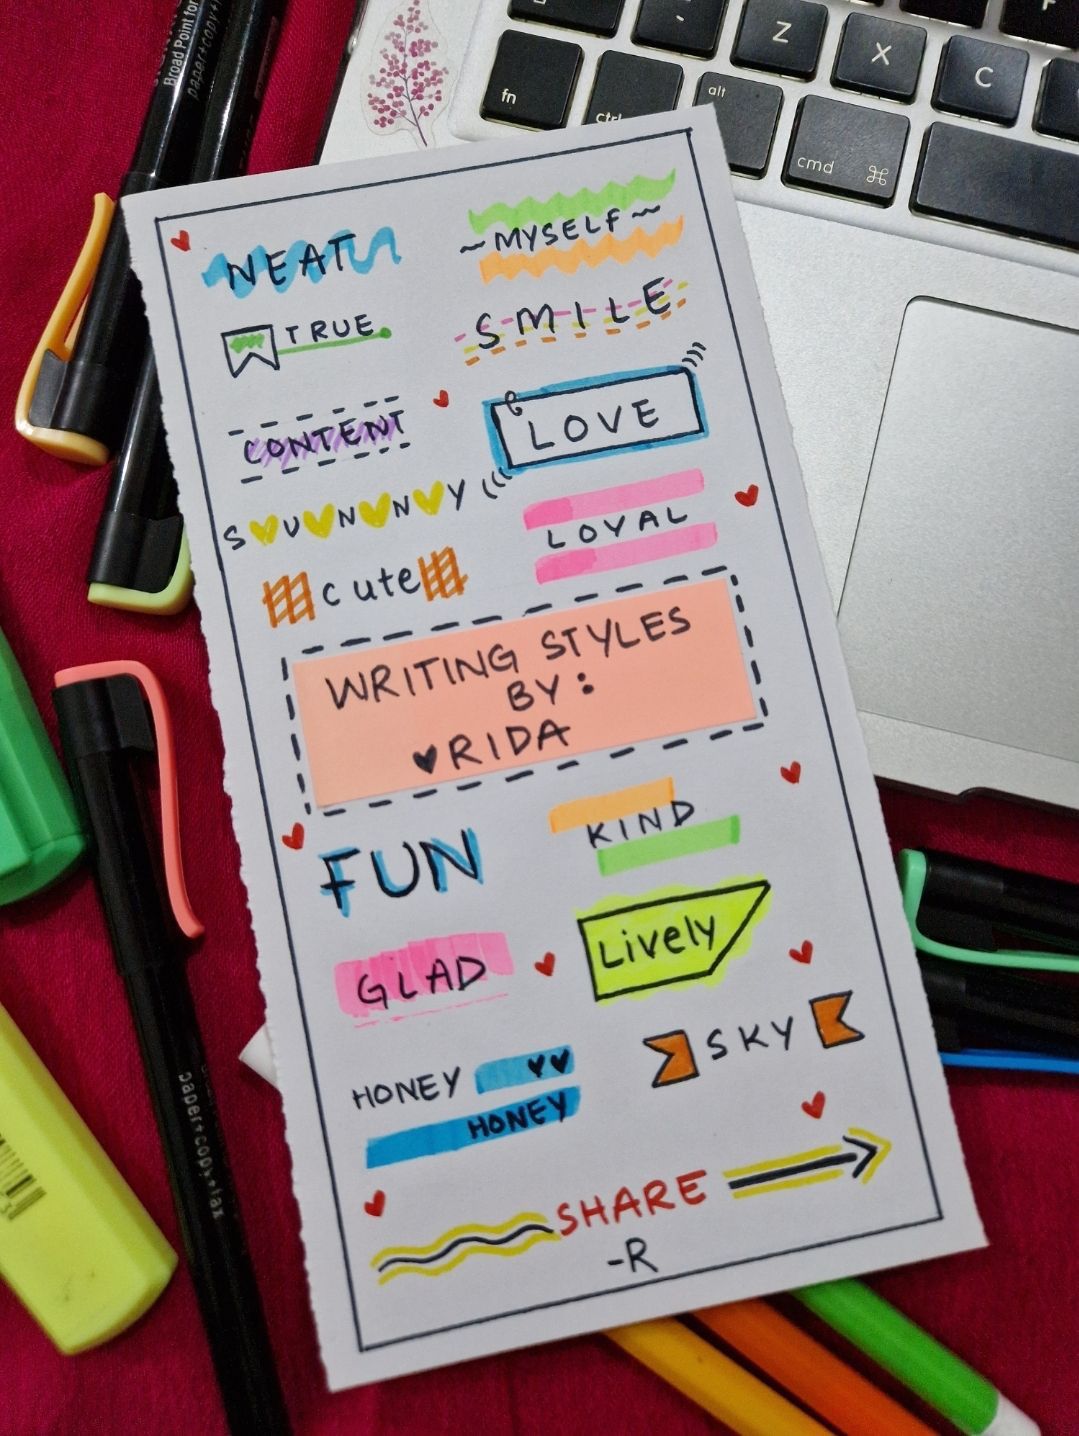 Broad Point for
paper+copy+
Z X C
fn
alt
cmd ⌘
NEAT
~MYSELF~
TRUE
SMILE
CONTENT
LOVE
SUNNY
LOYAL
cute
WRITING STYLES
BY:
♥RIDA
FUN
KIND
GLAD
Lively
SKY
HONEY
HONEY
SHARE
-R
paper+copy+fax